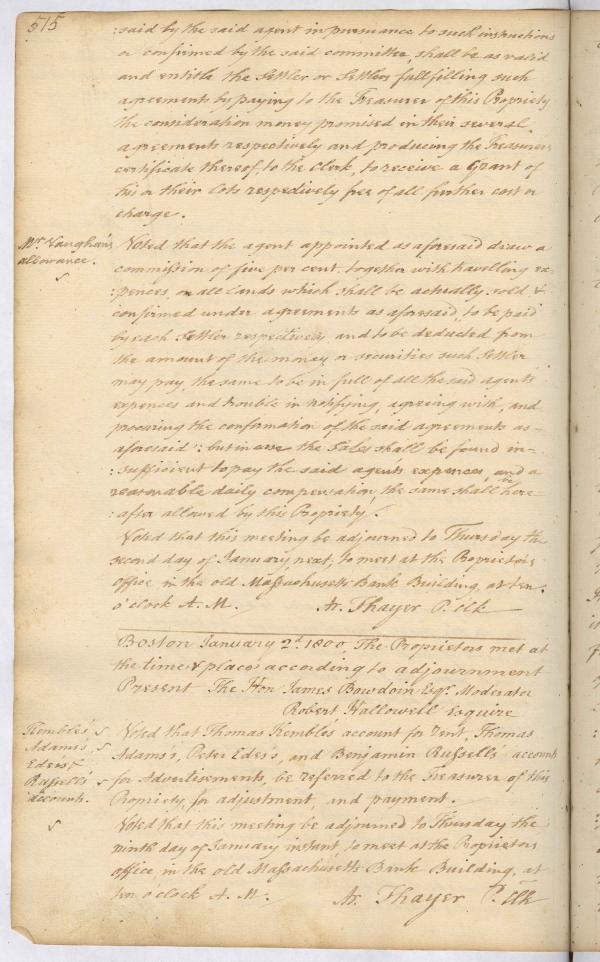 515
:said by the said agent in pursuance to such instructions
or confirmed by the said committee, shall be as valid
and entitle the Settler or Settlers fullfilling such
agreements by paying to the Treasurer of this Propriety
the consideration money promised in their several
agreements respectively and producing the Treasurers
certificate thereof, to the Clerk, to receive a Grant of
his or their Lots respectively free of all further cost or
charge.
Mr. Vaughan's
allowance.
Voted that the agent appointed as aforesaid draw a
commission of five per cent. together with travelling ex-
:pences, on all Lands which shall be actually sold &
confirmed under agreements as aforesaid, to be paid
by each Settler respectively and to be deducted from
the amount of the money or securities such Settler
may pay, the same to be in full of all the said agents
expences and trouble in notifying, agreeing with, and
procuring the confirmation of the said agreements as-
aforesaid: but in case the Sales shall be found in-
:sufficient to pay the said agents expences, and a
reasonable daily compensation, the same shall be here-
:after allowed by this Propriety.
Voted that this meeting be adjourned to Thursday the
second day of January next, to meet at the Proprietors
office, in the old Massachusetts Bank Building, at ten
o'clock A. M. Ar. Thayer P. Clk
Boston January 2d. 1800, The Proprietors met at
the time & place according to adjournment
Present The Hon James Bowdoin Esqr. Moderator
Robert Hallowell Esquire
Kemble's,
Adams's,
Edes's &
Russell's
accounts.
Voted that Thomas Kemble's account for rent, Thomas
Adams's, Peter Edes's, and Benjamin Russell's account
for Advertisements, be referred to the Treasurer of this
Propriety, for adjustment, and payment.
Voted that this meeting be adjourned to Thursday the
ninth day of January instant, to meet at the Proprietors
office, in the old Massachusetts Bank Building, at
ten o'clock A. M. Ar. Thayer P. Clk